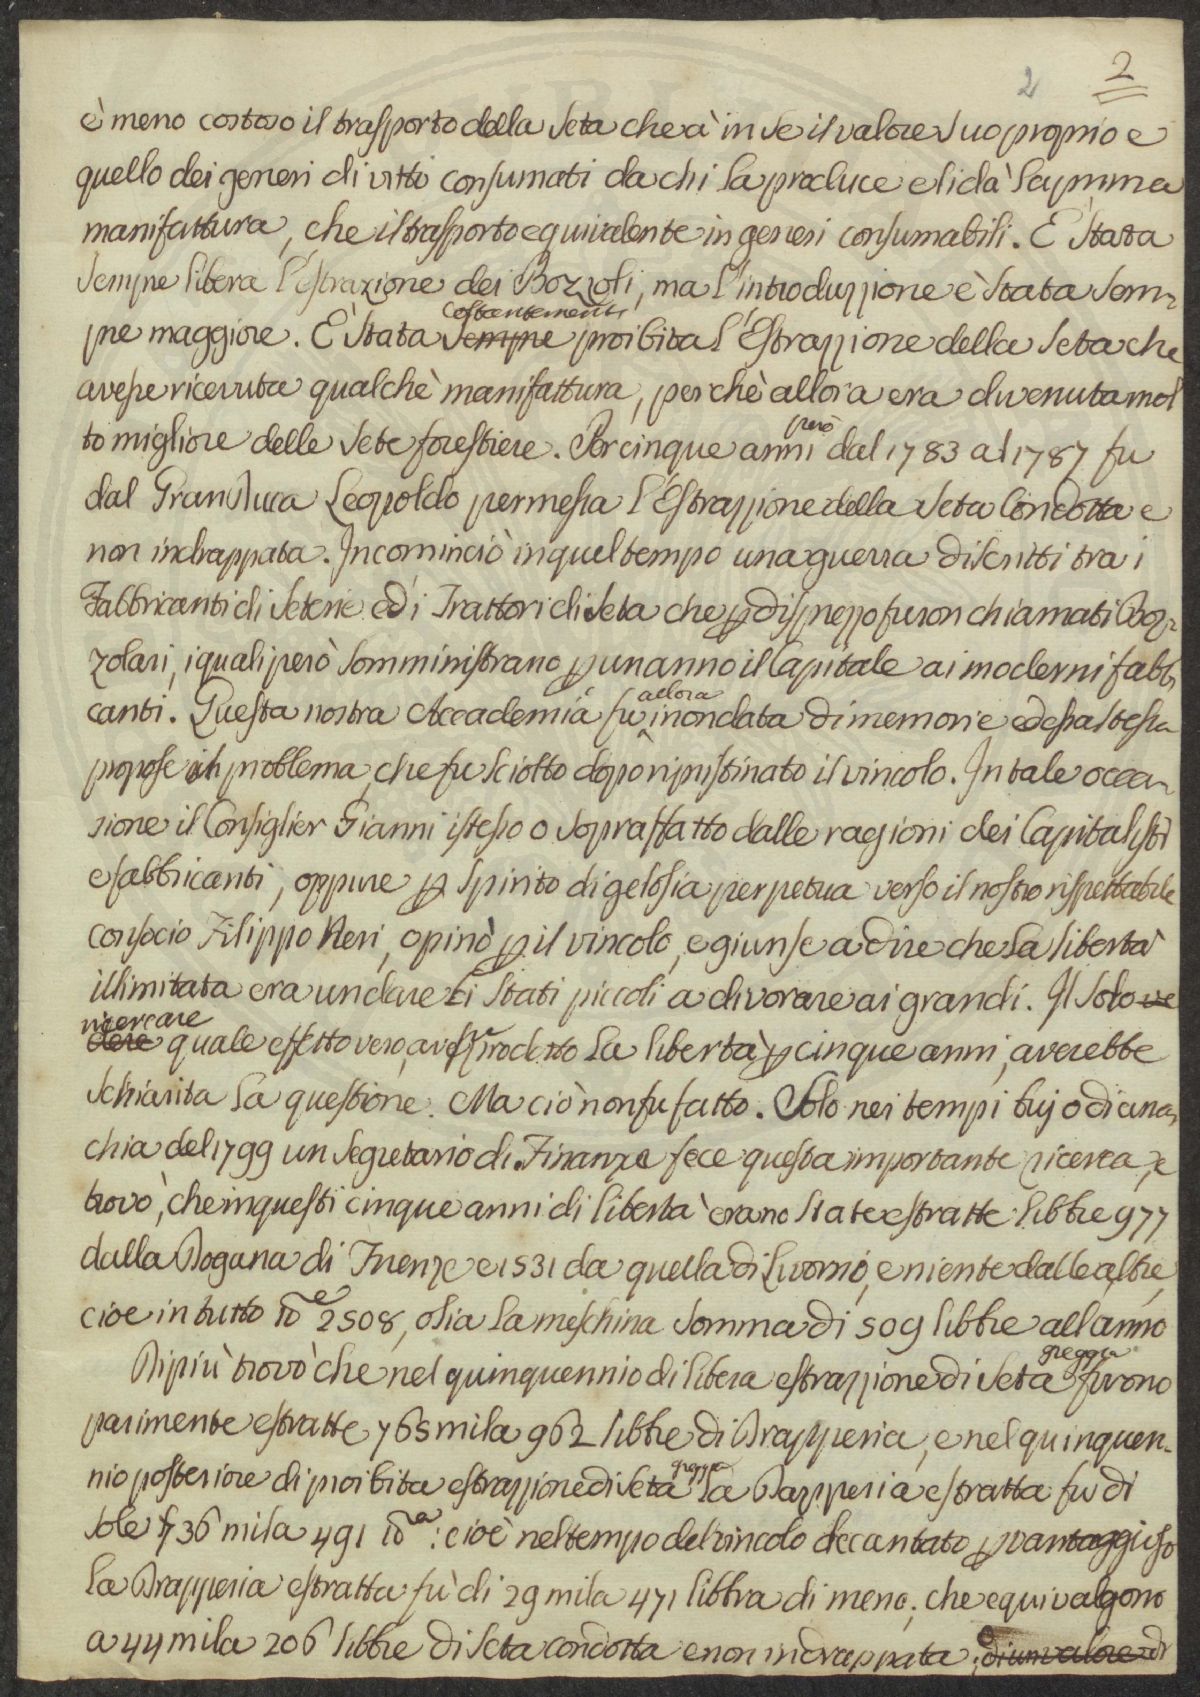 2 2
è meno costoso il trasporto della seta che à in se il valore suo proprio e
quello dei generi di vitto consumati da chi la produce e li dà la prima
manifattura, che il trasporto equivalente in generi consumabili. È stata
sempre libera l'estrazione dei Bozzoli, ma l'introduzzione è stata sem-
pre maggiore. È stata sempre costantemente proibita l'Estrazzione della seta che
avesse ricevuta qualche manifattura, perchè allora era divenuta mol
to migliore delle sete forestiere. Per cinque anni però dal 1783 al 1787 fu
dal Gran Duca Leopoldo permessa l'Estrazzione della seta Condotta e
non indrappata. Incominciò in quel tempo una guerra di scritti tra i
Fabbricanti di Seterie ed i Trattori di seta che p disprezzo furon chiamati Boz-
zolari, i quali però somministrano p un anno il Capitale ai moderni fabbri
canti. Questa nostra Accademia fu allora inondata di memorie ed essa stessa
propose il problema, che fu sciolto dopo ripristinato il vincolo. In tale occa-
sione il Consiglier Gianni istesso o sopraffatto dalle ragioni dei Capitalisti
e fabbricanti, oppure p spirito di gelosia perpetua verso il nostro rispettabile
consocio Filippo Neri, opinò p il vincolo, e giunse a dire che la libertà
illimitata era un dare li stati piccoli a divorare ai grandi. Il solo ve
dere ricercare quale effetto vero avesse prodotto la libertà p cinque anni, averebbe
schiarita la questione. Ma ciò non fu fatto. Solo nei tempi bujo di anar
chia del 1799 un segretario di Finanze fece questa importante ricerca, e
trovò, che in questi cinque anni di libertà erano state estratte libbre 977
dalla Dogana di Firenze e 1531 da quella di Livorno, e niente dalle altre,
cioe in tutto lb.e 2508, ossia la meschina somma di 509 libbre all'anno
Di più trovò che nel quinquennio di libera estrazzione di seta greggia furono
parimente estratte 765 mila 962 libbre di Drapperia, e nel quinquen-
nio posteriore di proibita estrazzione di seta greggia la Drapperia estratta fu di
sole 736 mila 491 lb.a: cioè nel tempo del vincolo decantato p vantaggioso
la Drapperia estratta fù di 29 mila 471 libbra di meno, che equivalgono
a 44 mila 206 libbre di seta condotta e non indrappata, di un valore di